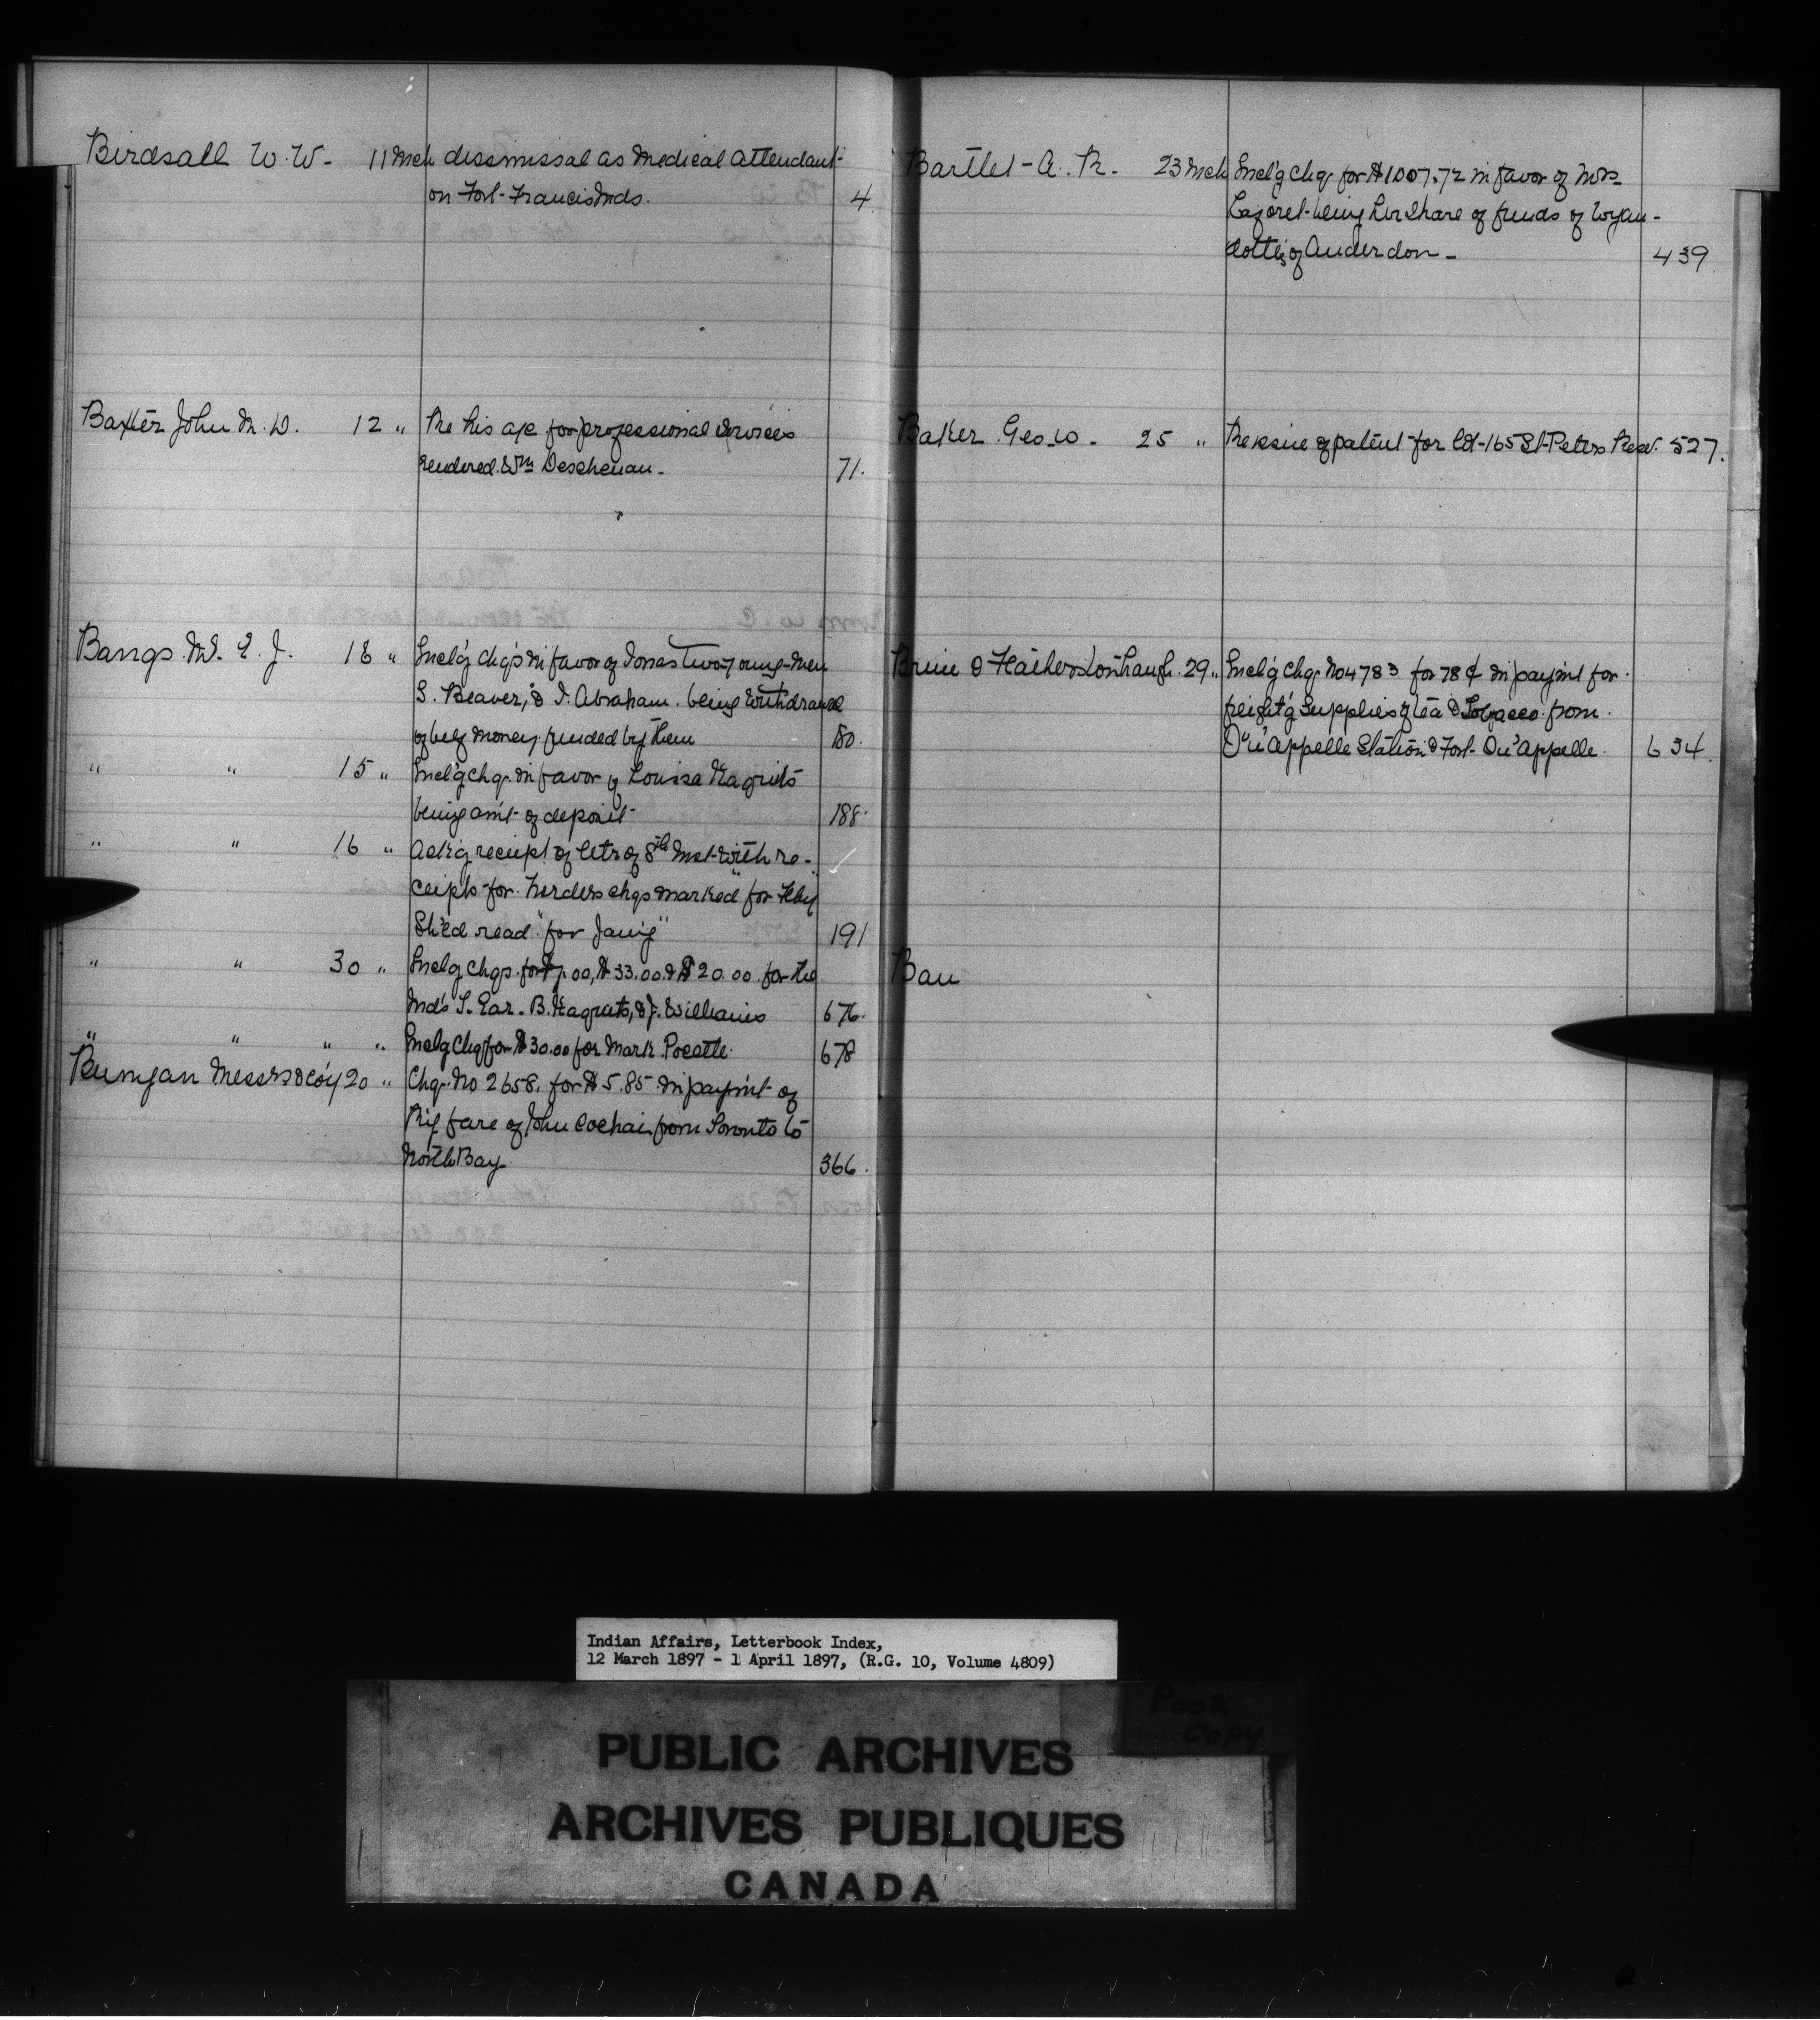 Birdsall W. W. - 11 Mch dismissal as Medical Attendant
on Fort-Francis Inds. 4
Baxter John M. D. 12 " Re his a/c for professional services
rendered Wm Deschenau - 71.
Bangs M. E. J. 18 " Incl'g chq's in favor of Jonas Two young-men
S. Beaver, & I. Abraham. being withdrawal
of beef money funded by them 180.
" " 15 " Incl'g chq. in favor of Louisa
being am't of deposit 188.
" " 16 " Ack'g receipt of letr of 8th inst with re-
ceipts for herders chqs marked "for Feby"
Sh'ld read "for Jan'y" 191
" " 30 " Inclg chqs. for $33.00 & $20.00 for the
Inds B. & J. Williams 676.
" " " " Inclg Chq for $30.00 for Mark Pocatte. 678
Runyan Messrs & Co'y 20 " Chq. No 2658. for $5.85 in paym't of
R'y fare of John from Toronto to
North Bay. 366.
Bartlet - A. R. - 23 Mch Incl'g chq. for $1007.72 in favor of Mrs
being her share of funds of Wyan-
dotte's of Anderdon - 439
Baker Geo. W - 25 " Re issue of patent for Lot-165 St-Peters Resv. 527.
29 " Incl'g chq. No 4783 for 78¢ in paym't for
freight'g supplies of tea & Tobacco from
Qu'Appelle Station & Fort-Qu'Appelle. 634.
Bau
Indian Affairs, Letterbook Index,
12 March 1897 - 1 April 1897, (R.G. 10, Volume 4809)
POOR
COPY
PUBLIC ARCHIVES
ARCHIVES PUBLIQUES
CANADA